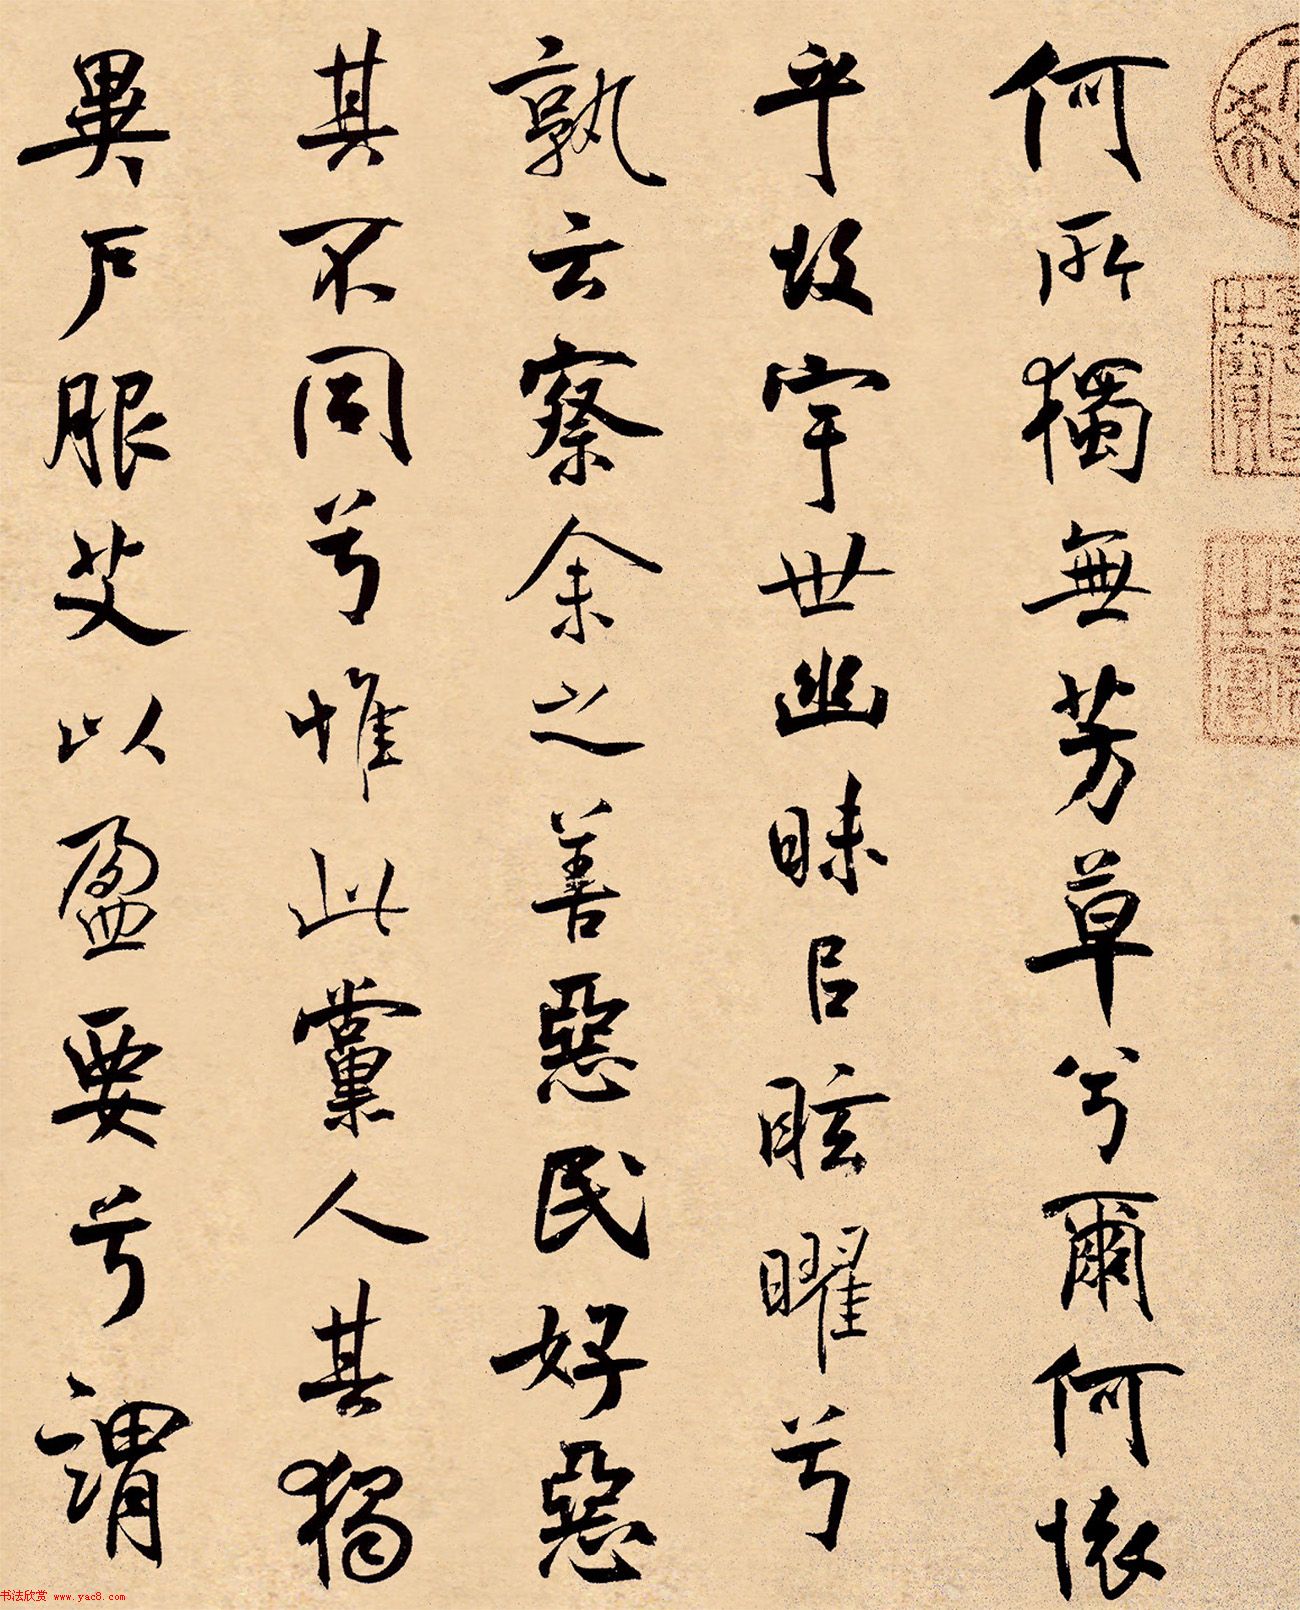 何所獨無芳草兮爾何懷
乎故宇世幽昧㠯眩曜兮
孰云察余之善惡民好惡
其不同兮惟此黨人其獨
異戶服艾以盈要兮謂
书法欣赏 www.yac8.com